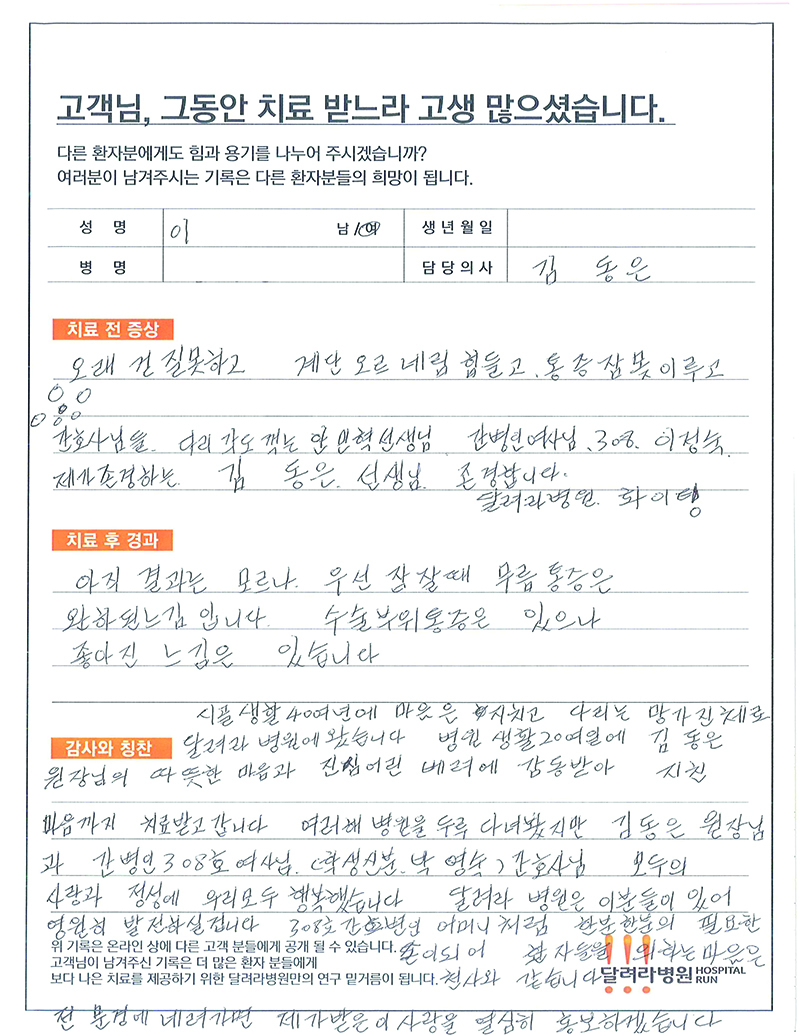 고객님, 그동안 치료 받느라 고생 많으셨습니다.
다른 환자분에게도 힘과 용기를 나누어 주시겠습니까?
여러분이 남겨주시는 기록은 다른 환자분들의 희망이 됩니다.
성 명 이 남/여 생년월일
병 명 담당의사 김 동은
치료 전 증상
오래 걷질못하고 계단 오르 네림 힘들고, 통증잠못이루고
간호사님들. 다리 각도 꺾는 안민혁선생님 간병인여사님、308. 이정숙.
제가존경하는. 김 동은. 선생님. 존경합니다.
달려라병원. 화이팅
치료 후 경과
아직 결과는 모르나. 우선 잠잘때 무릅통증은
완하된느낌입니다. 수술부위통증은 있으나
좋아진 느낌은 있습니다
시골생활40여년에 마음은 지치고 다리는 망가진채로
감사와 칭찬 달려라 병원에 왔습니다 병원 생활20여일에 김 동은
원장님의 따뜻한 마음과 진심어린 베려에 감동받아 지친
마음까지 치료받고 갑니다 여러해 병원을 두루 다녀봤지만 김동은 원장님
과 간병인308호여사님. (학생신분.박 영숙) 간호사님 모두의
사랑과 정성에 우리모두 행복했습니다 달려라 병원은 이분들이 있어
영원히 발전하실겁니다 308호간병인 어머니처럼 한분한분의 필요한
위 기록은 온라인 상에 다른 고객 분들에게 공개 될 수 있습니다. 손이되어 환자들을 위하는마음은
고객님이 남겨주신 기록은 더 많은 환자 분들에게
보다 나은 치료를 제공하기 위한 달려라병원만의 연구 밑거름이 됩니다. 천사와 같습니다
달려라병원 HOSPITAL RUN
전 문경에 네려가면 제가받은이사랑을 열심히 홍보하겠습니다